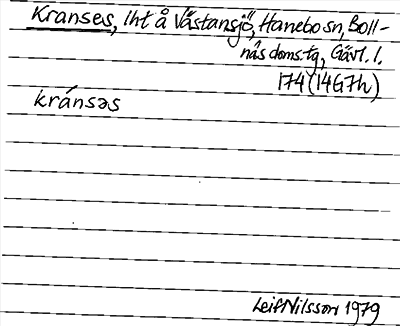 Kranses, lht å Västansjö, Hanebo sn, Boll-
näs doms.tg, Gävl. l.
174 (14G7h)
kránsəs
Leif Nilsson 1979